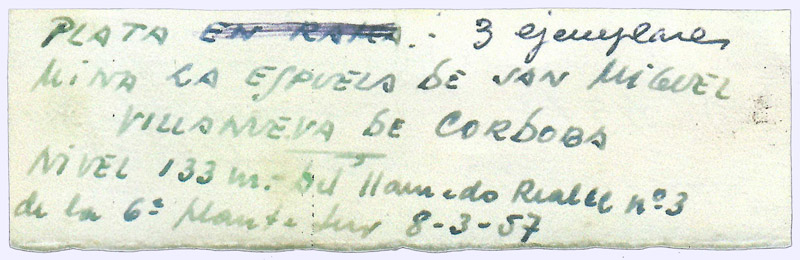 PLATA EN RAMA.- 3 ejemplares
MINA LA ESPUELA DE SAN MIGUEL
VILLANUEVA DE CORDOBA
NIVEL 133 m.- Del llamado Realce nº3
de la 6ª Planta Sur 8-3-57